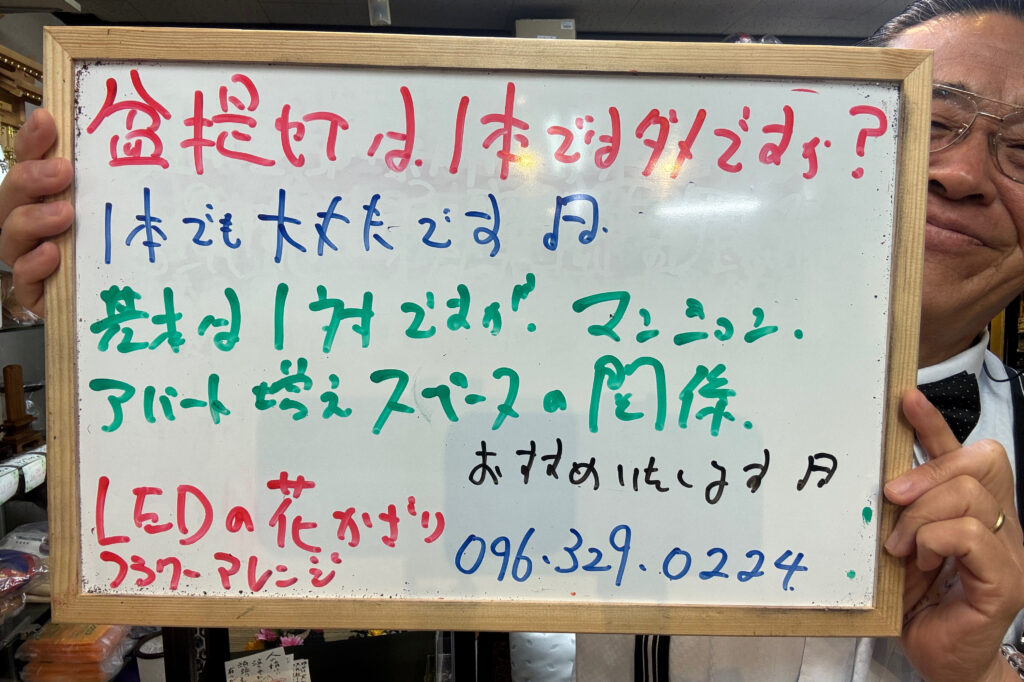 盆提灯は、1本ではダメですか?
1本でも大丈夫です
基本は1対ですが、マンション、
アパート増えスペースの関係、
おすすめいたします
LEDの花かざり
フラワーアレンジ
096.329.0224